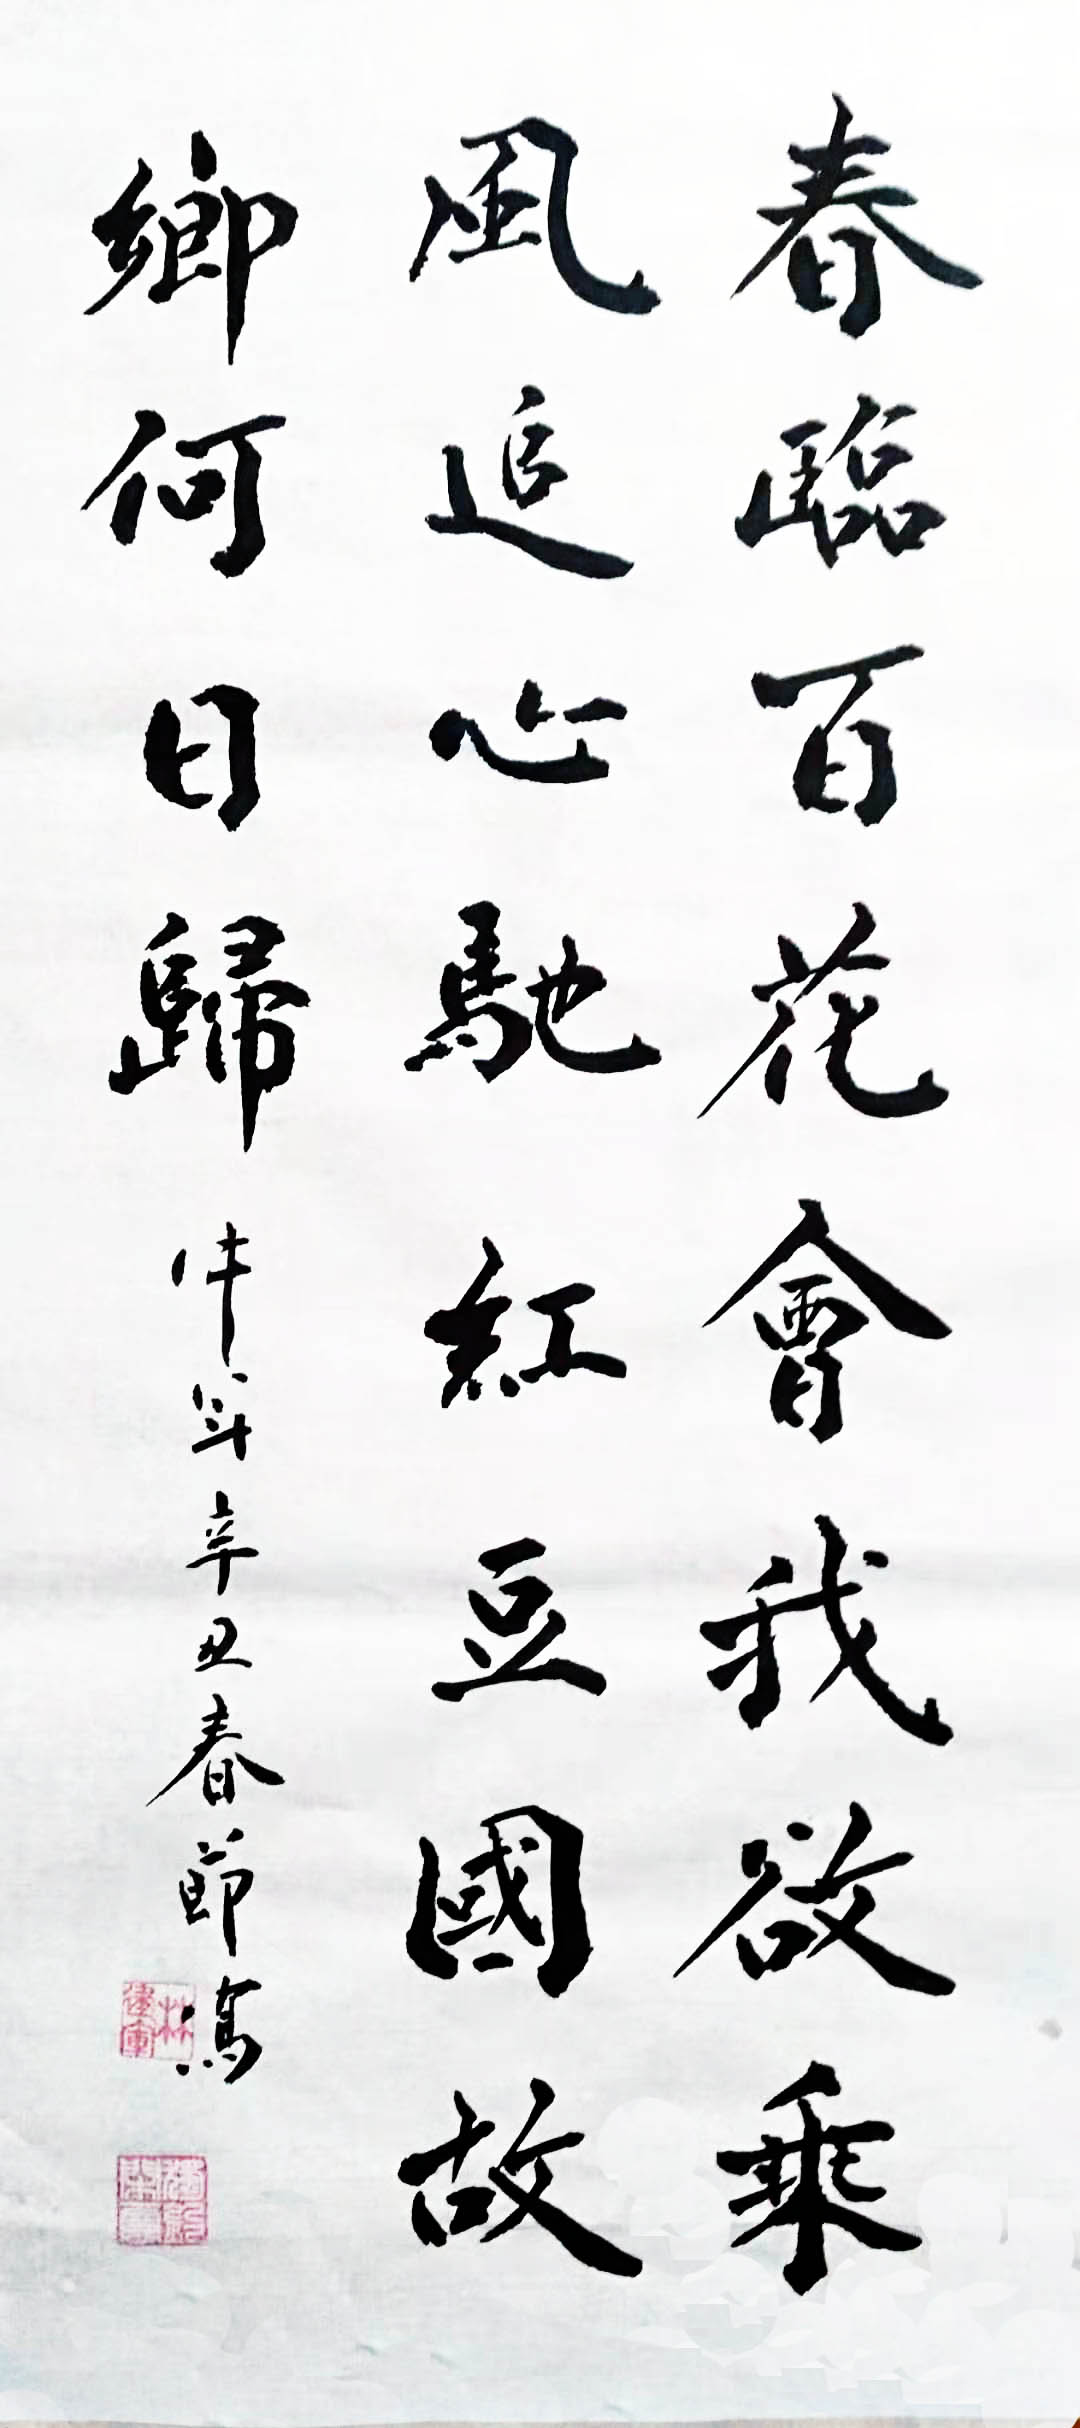 春臨百花會我欲乘
風追心馳紅豆國故
鄉何日歸 牛年辛丑春節寫
林建軍